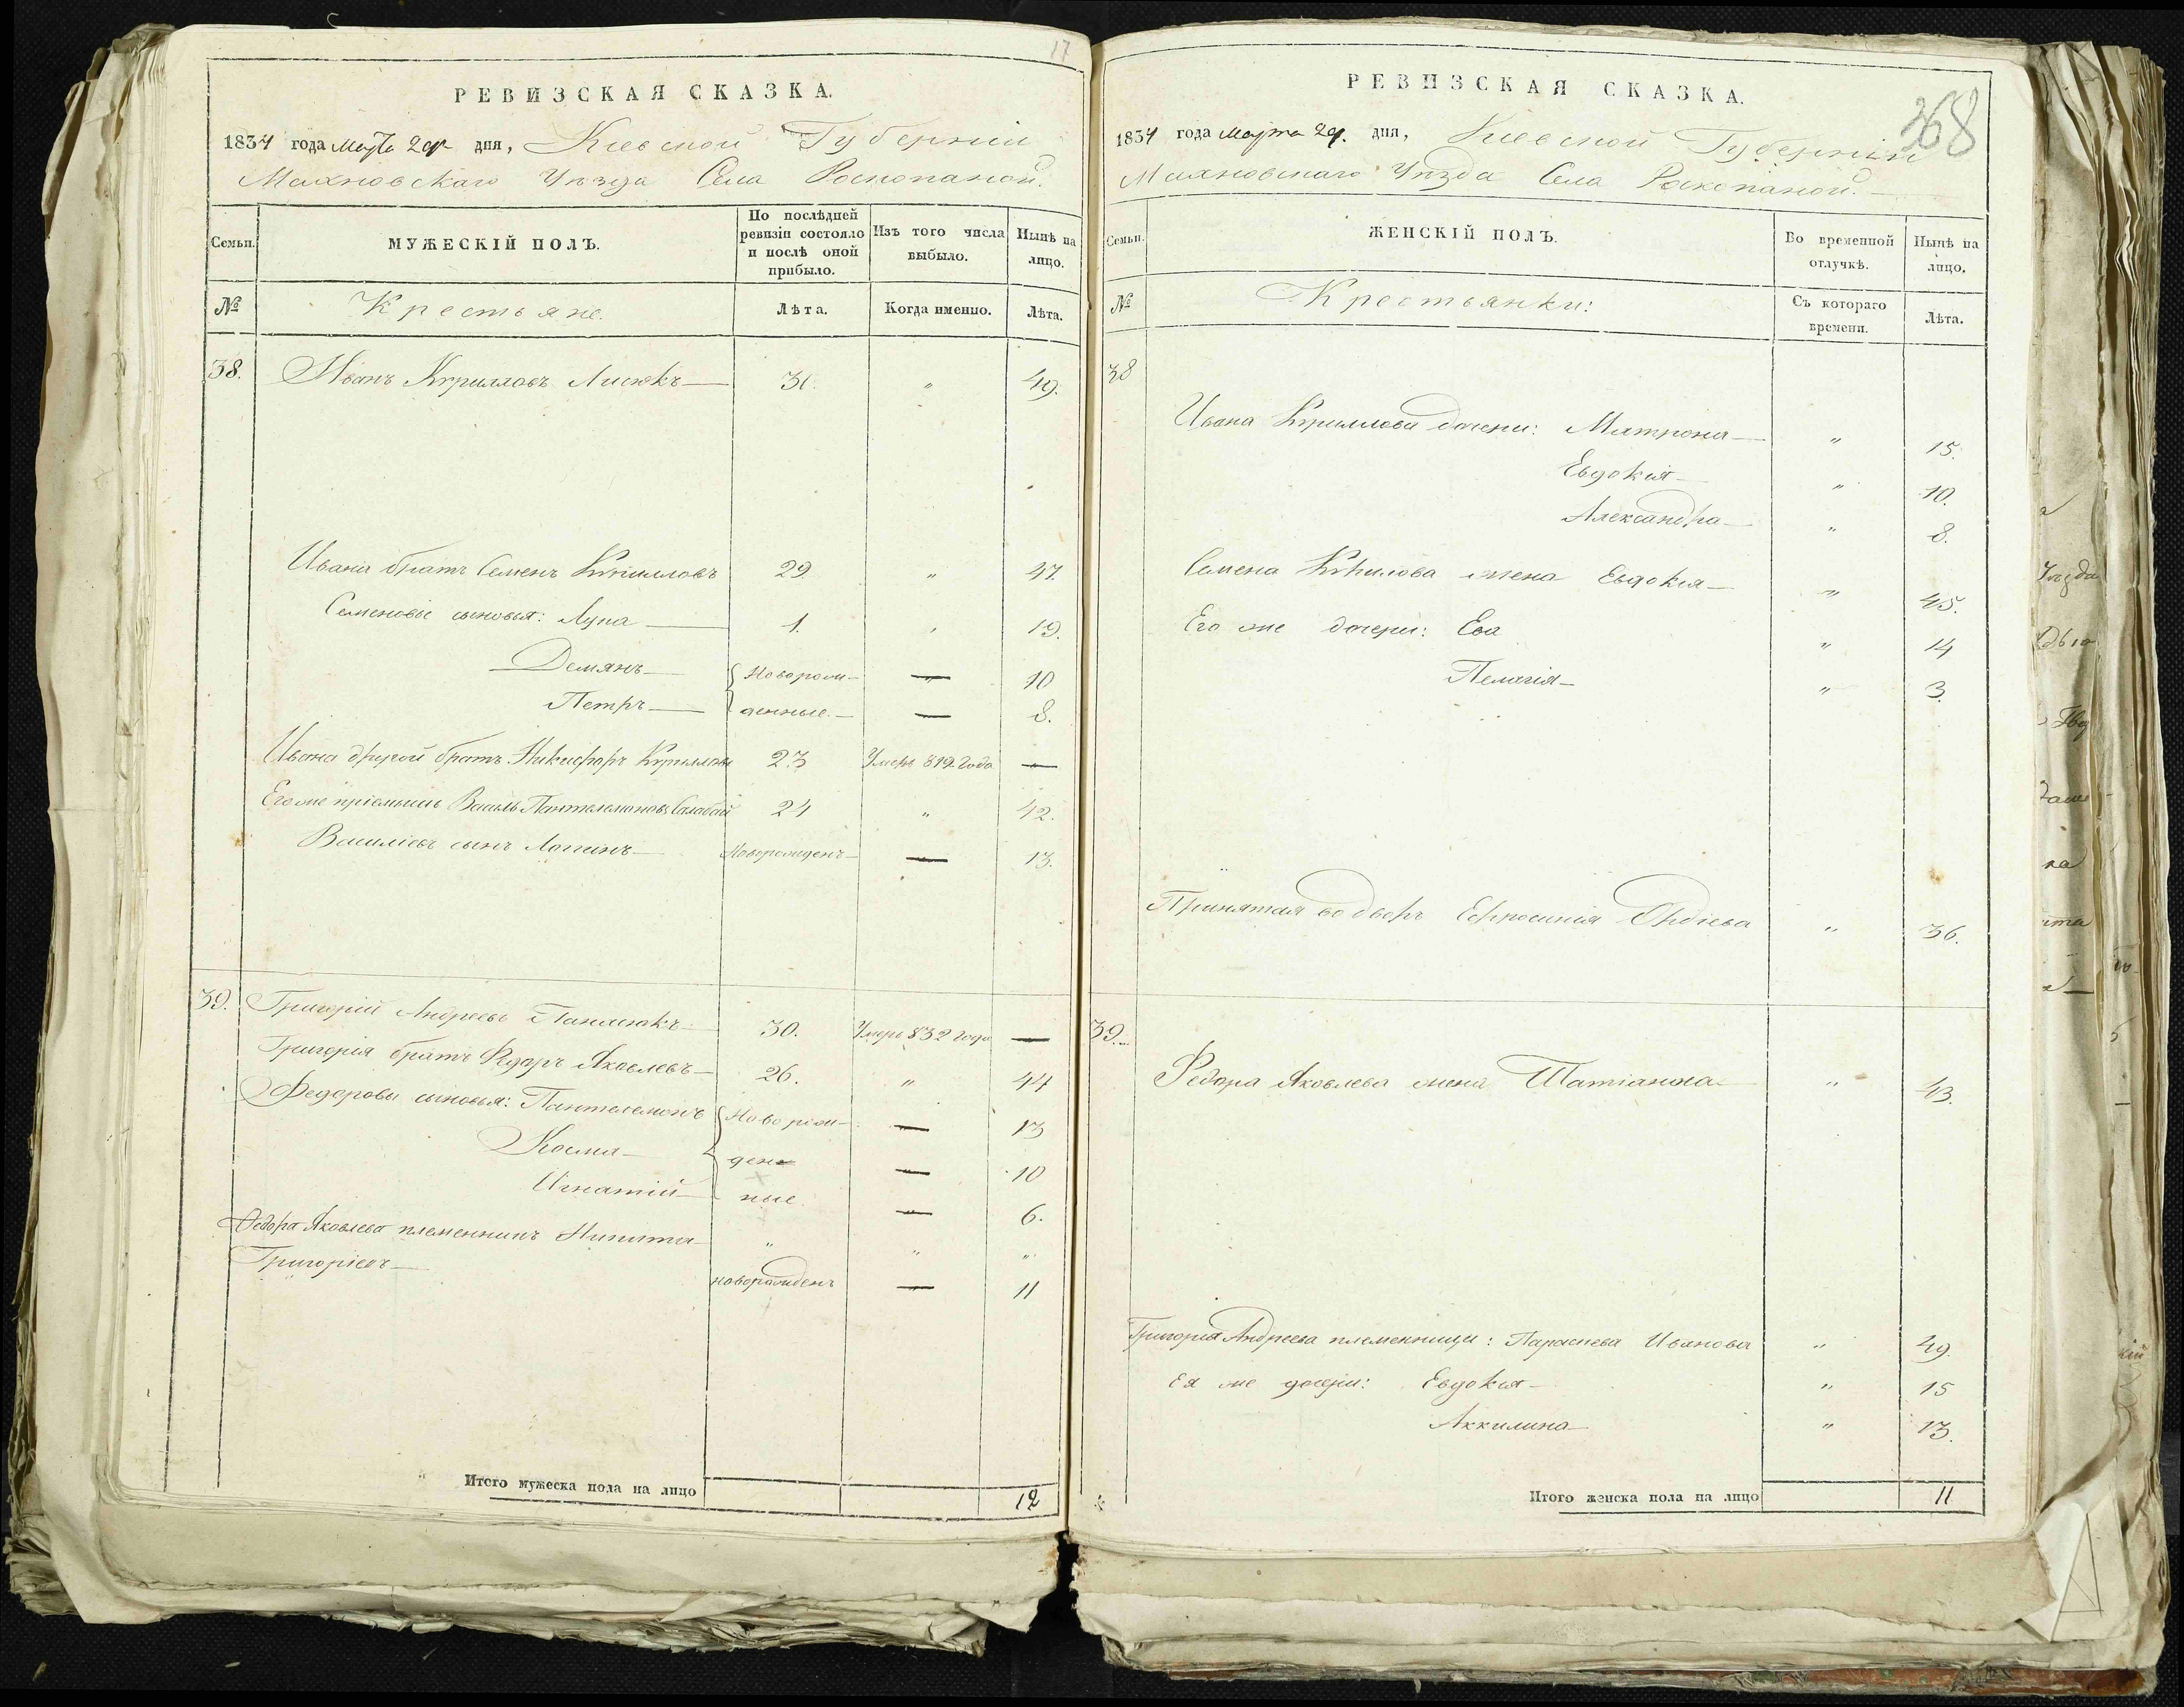 17
РЕВИЗСКАЯ СКАЗКА.
1834 года Марта 29 дня, Кіевской Губерніи
Махновскаго Уѣзда Села Роскопаной.
Семьи.
МУЖЕСКІЙ ПОЛЪ.
По послѣдней ревизіи состояло и послѣ оной прибыло.
Изъ того числа выбыло.
Нынѣ на лицо.
№ Крестьяне. Лѣта. Когда именно. Лѣта.
38. Иванъ Кириловъ Лисюкъ — 31. " 49.
Ивана братъ Семенъ Кириловъ 29. " 47.
Семеновы сыновья: Лупа — 1. " 19.
Демянъ — Новорож- — 10
Петръ — денные. — — 8.
Ивана другой братъ Никифоръ Кириловъ 23 Умеръ 819 года —
Его же пріемышъ Василь Пантелемоновъ 24 " 42.
Василіевъ сынъ Логинъ — Новорожденъ — — 13.
39. Григорій Андреевъ — 30. Умеръ 832 года —
Григорія братъ Федоръ Яковлевъ — 26. " 44
Федоровы сыновья: Пантелемонъ Новорож- — 13
Косма — ден — 10
Игнатій — ные — 6.
Федора Яковлева племенникъ Никита — " " "
Григоріевъ — новорожденъ — 11
Итого мужеска пола на лицо 12
368
РЕВИЗСКАЯ СКАЗКА.
1834 года Марта 29. дня, Кіевской Губерніи
Махновскаго Уѣзда Села Роскопаной. —
Семьи.
ЖЕНСКІЙ ПОЛЪ.
Во временной отлучкѣ.
Нынѣ на лицо.
№ Крестьянки: Съ котораго времени. Лѣта.
38
Ивана Кирилова дочери: Матрона — " 15.
Евдокія — " 10.
Александра — " 8.
Семена Кирилова жена Евдокія — " 45.
Его же дочери: Ева " 14
Пелагія — " 3.
Принятая во дворъ Ефросинія " 36.
39.
Федора Яковлева жена Татіанна — " 43.
Григорія Андреева племенница: Параскева Иванова " 49.
Ея же дочери: Евдокія — " 15
Аккилина — " 13.
Итого женска пола на лицо 11